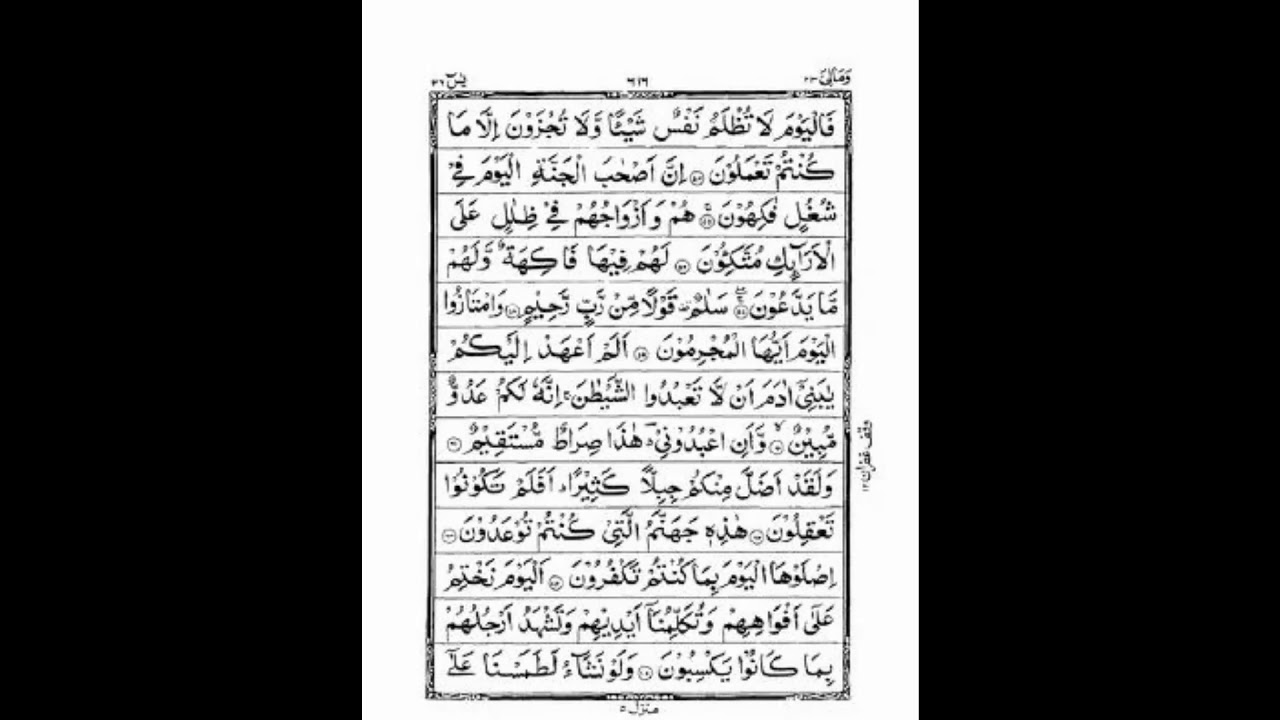 وَمَالِیَ ٢٣ ٦١٦ يٰسٓ ٣٦
فَالْيَوْمَ لَا تُظْلَمُ نَفْسٌ شَيْئًا وَّلَا تُجْزَوْنَ اِلَّا مَا
كُنْتُمْ تَعْمَلُوْنَ ۝٥٤ اِنَّ اَصْحٰبَ الْجَنَّةِ الْيَوْمَ فِيْ
شُغُلٍ فٰكِهُوْنَ ۝٥٥ هُمْ وَاَزْوَاجُهُمْ فِيْ ظِلٰلٍ عَلَى
الْاَرَآئِكِ مُتَّكِـُٔوْنَ ۝٥٦ لَهُمْ فِيْهَا فَاكِهَةٌ وَّلَهُمْ
مَّا يَدَّعُوْنَ ۝٥٧ سَلٰمٌ قَوْلًا مِّنْ رَّبٍّ رَّحِيْمٍ ۝٥٨ وَامْتَازُوا
الْيَوْمَ اَيُّهَا الْمُجْرِمُوْنَ ۝٥٩ اَلَمْ اَعْهَدْ اِلَيْكُمْ
يٰبَنِيْٓ اٰدَمَ اَنْ لَّا تَعْبُدُوا الشَّيْطٰنَ ۚ اِنَّهٗ لَكُمْ عَدُوٌّ
مُّبِيْنٌ ۝٦٠ وَّاَنِ اعْبُدُوْنِيْ ۘ هٰذَا صِرَاطٌ مُّسْتَقِيْمٌ ۝٦١
وَلَقَدْ اَضَلَّ مِنْكُمْ جِبِلًّا كَثِيْرًا ۚ اَفَلَمْ تَكُوْنُوْا
تَعْقِلُوْنَ ۝٦٢ هٰذِهٖ جَهَنَّمُ الَّتِيْ كُنْتُمْ تُوْعَدُوْنَ ۝٦٣
اِصْلَوْهَا الْيَوْمَ بِمَا كُنْتُمْ تَكْفُرُوْنَ ۝٦٤ اَلْيَوْمَ نَخْتِمُ
عَلٰٓى اَفْوَاهِهِمْ وَتُكَلِّمُنَآ اَيْدِيْهِمْ وَتَشْهَدُ اَرْجُلُهُمْ
بِمَا كَانُوْا يَكْسِبُوْنَ ۝٦٥ وَلَوْ نَشَآءُ لَطَمَسْنَا عَلٰٓى
منزل ٥
وقف غفران ١٢